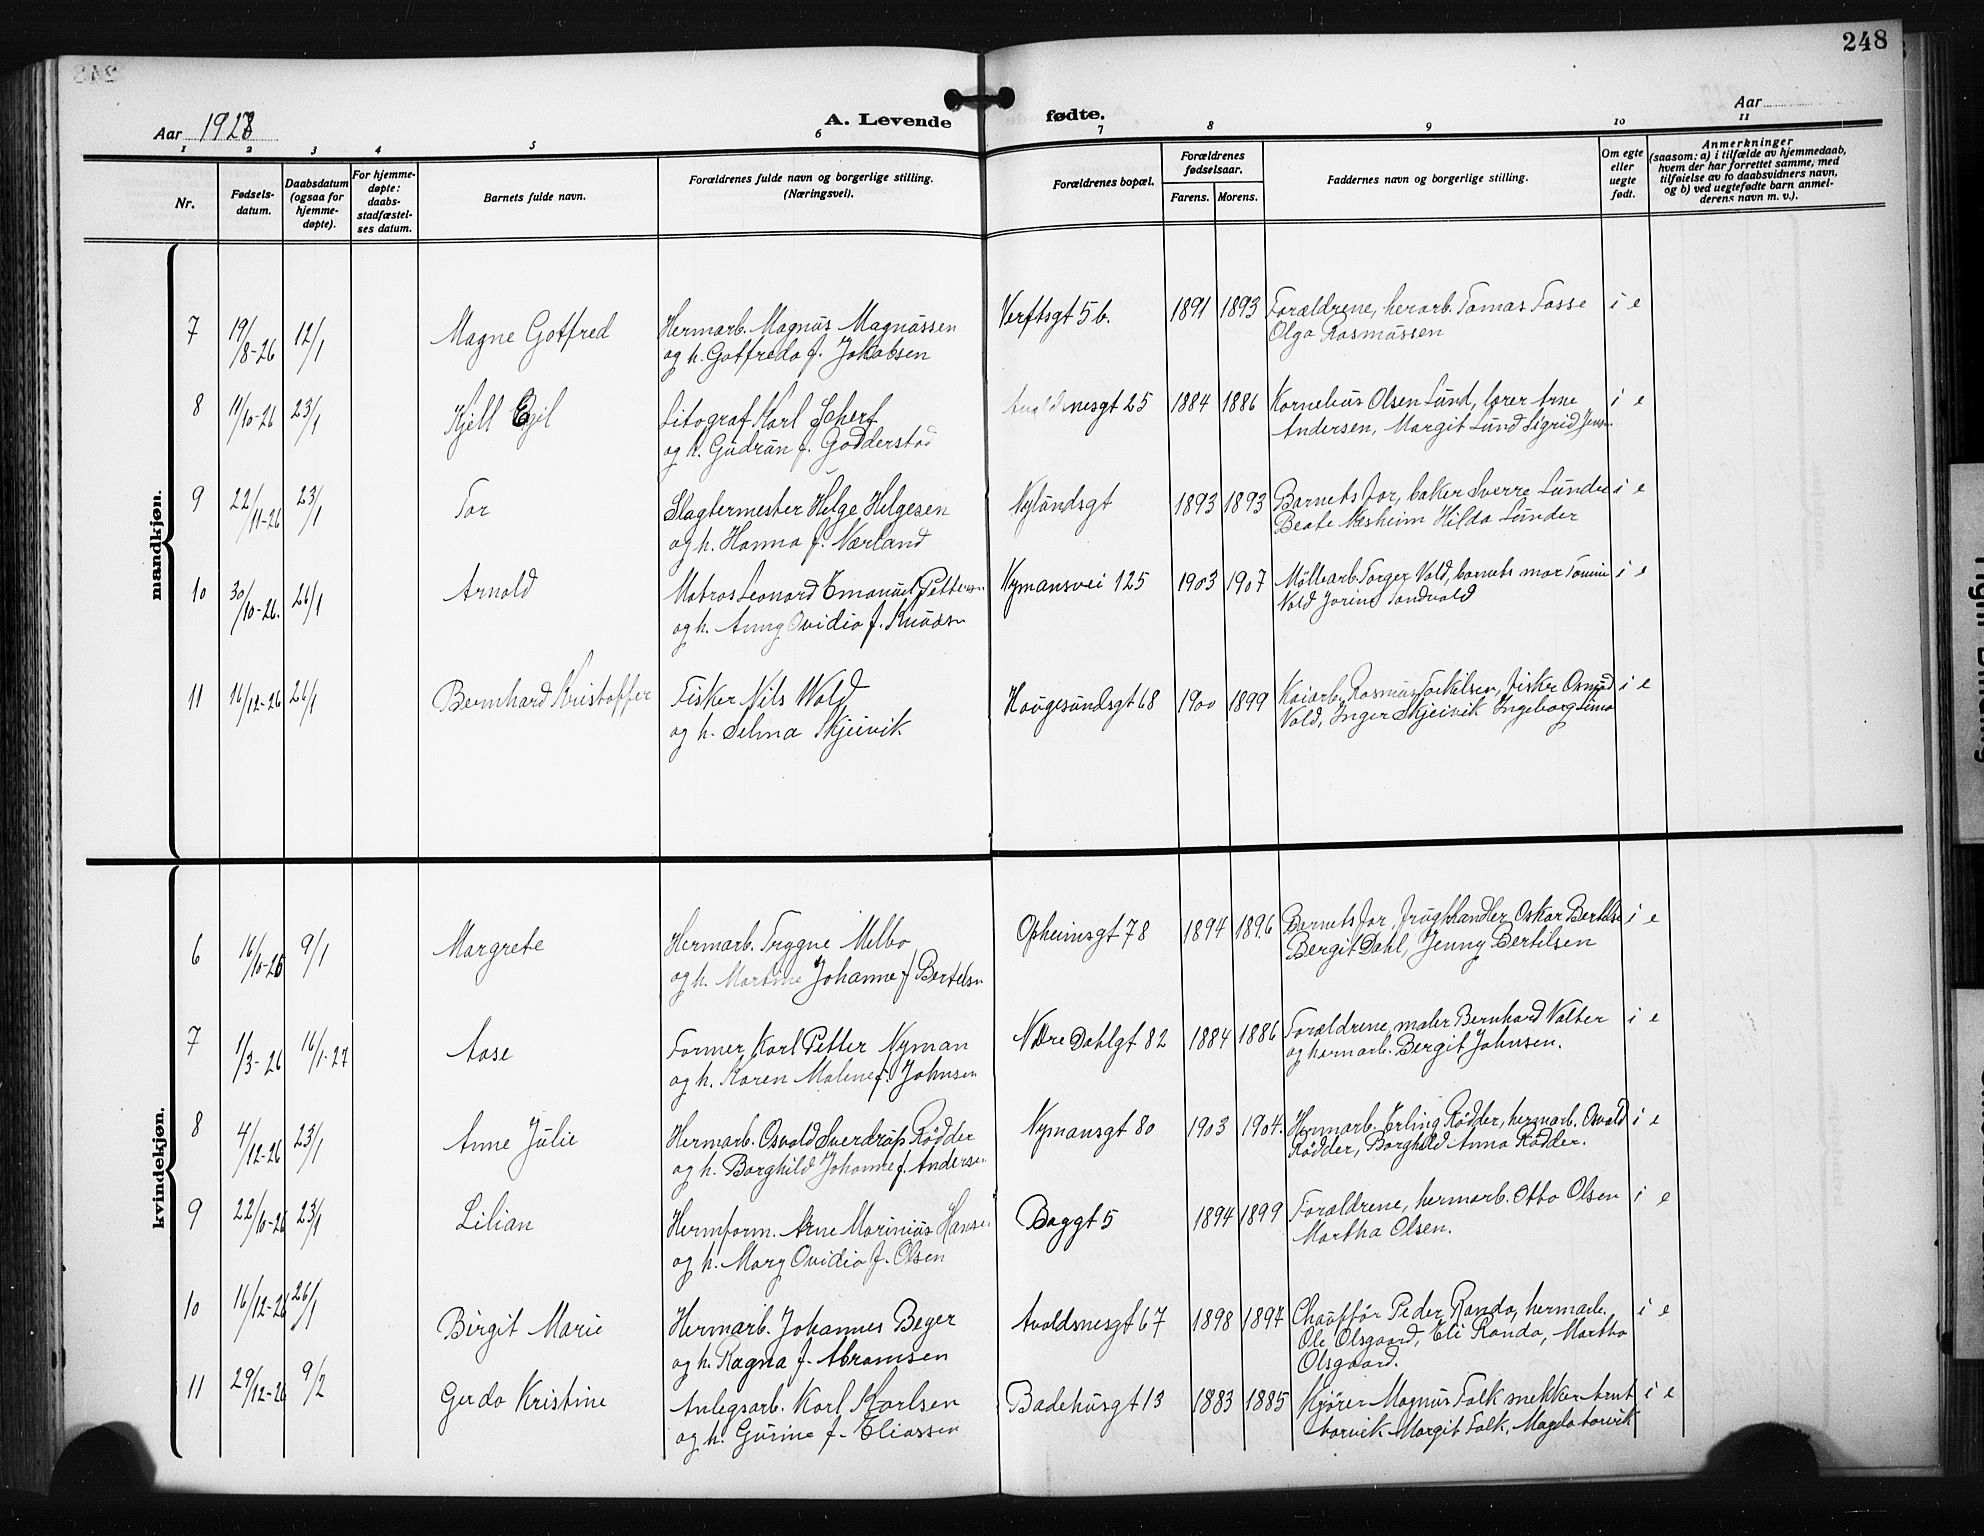 248
Aar 1927
A. Levende fødte.
Aar
1 2 3 4 5 6 7 8 9 10 11
Nr.
Fødsels-
datum.
Daabsdatum
(ogsaa for
hjemme-
døpte).
For hjemme-
døpte:
daabs-
stadfæstel-
ses datum.
Barnets fulde navn.
Forældrenes fulde navn og borgerlige stilling.
(Næringsvei).
Forældrenes bopæl.
Forældrenes
fødselsaar.
Farens. Morens.
Faddernes navn og borgerlige stilling.
Om egte
eller
uegte
født.
Anmerkninger
(saasom: a) i tilfælde av hjemmedaab,
hvem der har forrettet samme, med
tilføielse av to daabsvidners navn,
og b) ved uegtefødte barn anmel-
derens navn m. v.).
mandkjøn.
7 19/8-26 12/1 Magne Gotfred Hermarb. Magnus Magnussen Verftsgt 5b. 1891 1893 Forældrene, herarb. Tomas Tasse i e
og h. Gotfreda f. Jakobsen Olga Rasmussen
8 11/10-26 23/1 Kjell Egil Litograf Karl Scherf Avaldsnesgt 25 1884 1886 Kornelius Olsen Lund, lærer Arne i e
og h. Gudrun f. Godderstad Andersen, Margit Lund Sigrid Jensen
9 22/11-26 23/1 Tor Slagtermester Helge Helgesen Nylundsgt 1893 1893 Barnets far, baker Sverre Lunder i e
og h. Hanna f. Nærland Beate Næsheim Hilda Lunder
10 30/10-26. 26/1 Arnold Matros Leonard Emanuel Petterson Nymansvei 125 1903 1907 Møllearb. Torger Vold, barnets mor i e
og h. Anny Ovidia f. Knudsen Vold Jorine Sandvold
11 16/12-26 26/1 Bernhard Kristoffer Fisker Nils Wold Haugesundsgt 68 1900 1899 Kaiarb. Rasmus Torkilsen, fisker Osmund i e
og h. Selma Skjeivik Vold, Inger Skjeivik Ingeborg Lima
kvindekjøn.
6 16/10-26 9/1 Margrete Hermarb. Trygne Melbo Opheimsgt 78 1894 1896 Barnets far, frugthandler Oskar Bertelsen i e
og h. Martine Johanne f. Bertelsen Bergit Dahl, Jenny Bertilsen
7 1/3-26 16/1-27 Aase Former, Karl Petter Nyman Nedre Dahlgt 82 1884 1886 Forældrene, maler Bernhard Valter i e
og h. Karen Malene f. Johnsen og hermarb. Bergit Johnsen.
8 4/12-26 23/1 Anne Julie Hermarb. Osvald Sverdrup Rødder Nymansgt 80 1903 1904. Hermarb. Erling Rødder, hermarb. Osvald i e
og h. Borghild Johanne f. Andersen Rødder, Borghild Anna Rødder.
9 22/10-26 23/1 Lilian Hermform. Arne Marinius Hansen Baggt 5 1894 1899 Forældrene, hermarb. Otto Olsen i e
og h. Mary Ovidia f. Olsen Martha Olsen.
10 16/12-26 26/1 Birgit Marie Hermarb. Johannes Beyer Avaldsnesgt 67 1898 1897 Chauffør Peder Randa, hermarb. i e
og h. Ragna f. Abramsen Ole Olsgaard, Eli Randa, Martha
Olsgaard.
11 29/12-26 9/2 Gerda Kristine Anlegsarb. Karl Karlsen Badehusgt 13 1883 1885 Kjører Magnus Falk snekker Arnt i e
og h. Gurine f. Eliassen Margit Falk, Magda